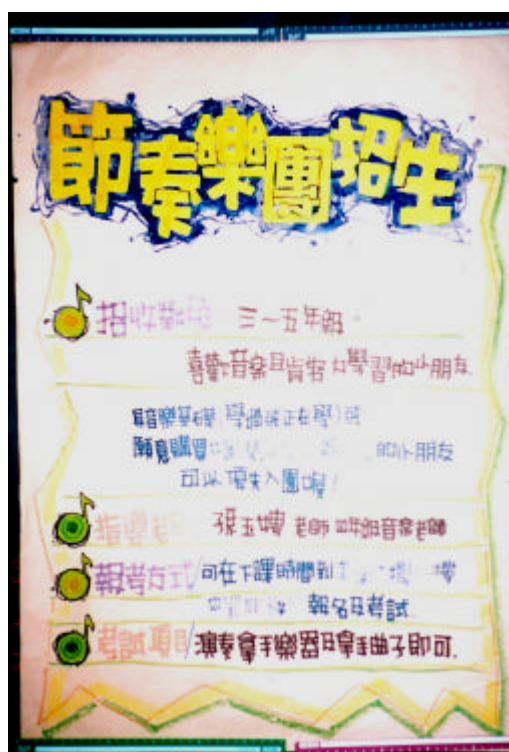 節奏樂團招生
招收對象 三~五年級
喜歡音樂且肯努力學習的小朋友.
有音樂基礎(學過或正在學)或
願意購買 的小朋友
可以優先入團喔!
指導老師 張玉 老師 四年級音樂老師
報考方式/可在下課時間到 樓
報名及考試.
考試項目/演奏拿手樂器及拿手曲子即可.